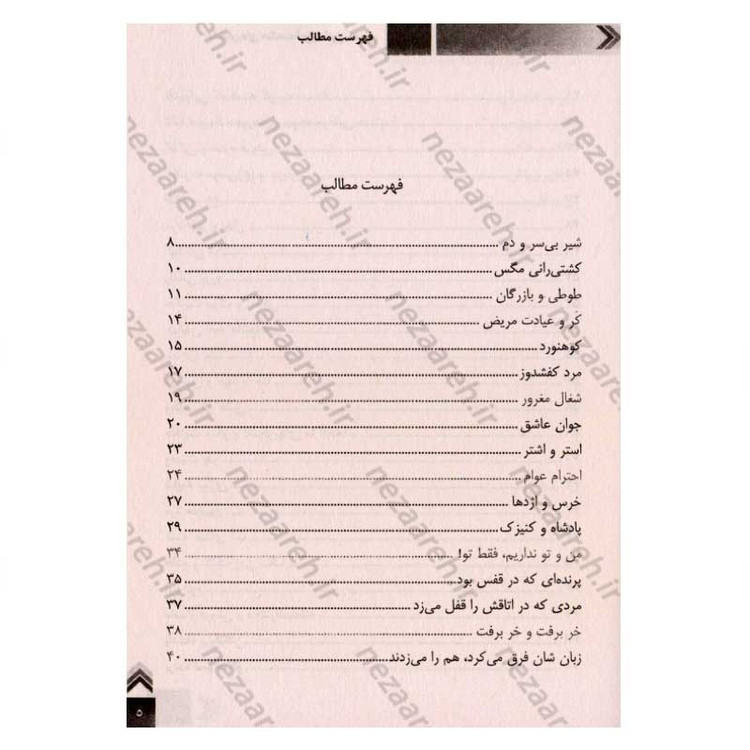 فهرست مطالب
فهرست مطالب
شیر بی‌سر و دم ........ ۸
کشتی‌رانی مگس ........ ۱۰
طوطی و بازرگان ........ ۱۱
کَر و عیادت مریض ........ ۱۴
کوهنورد ........ ۱۵
مرد کفشدوز ........ ۱۷
شغال مغرور ........ ۱۹
جوان عاشق ........ ۲۰
استر و اشتر ........ ۲۳
احترام عوام ........ ۲۴
خرس و اژدها ........ ۲۷
پادشاه و کنیزک ........ ۲۹
من و تو نداریم، فقط تو! ........ ۳۴
پرنده‌ای که در قفس بود ........ ۳۵
مردی که در اتاقش را قفل می‌زد ........ ۳۷
خر برفت و خر برفت ........ ۳۸
زبان شان فرق می‌کرد، هم را می‌زدند ........ ۴۰
۵
nezaareh.ir